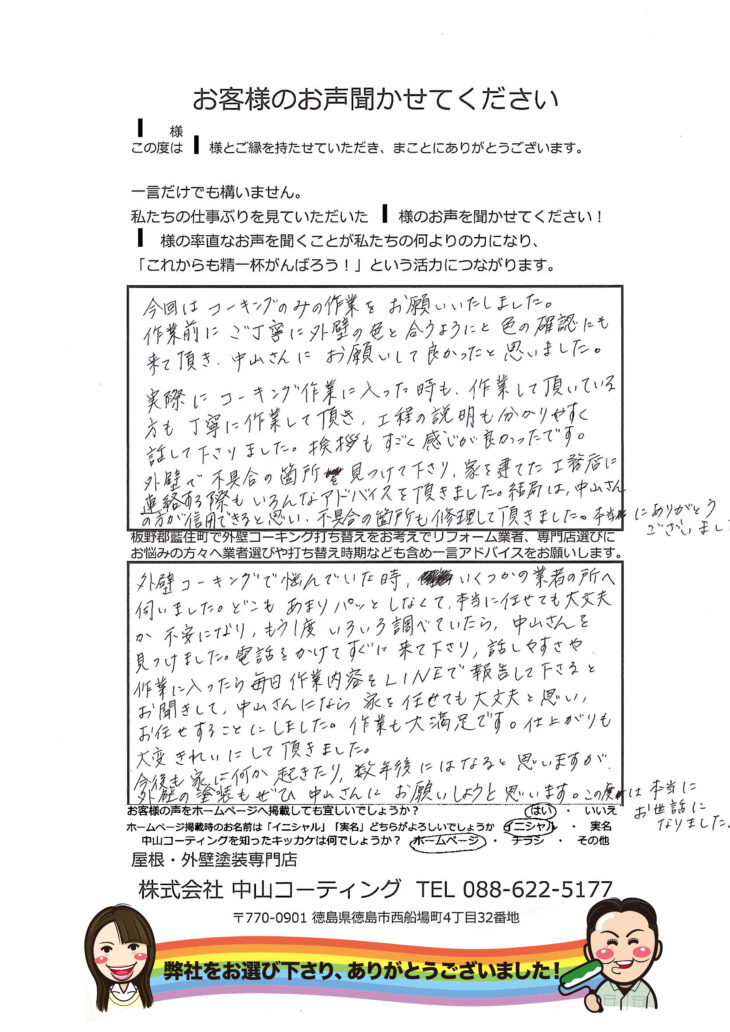 お客様のお声聞かせてください
I 様
この度は I 様とご縁を持たせていただき、まことにありがとうございます。
一言だけでも構いません。
私たちの仕事ぶりを見ていただいた I 様のお声を聞かせてください！
I 様の率直なお声を聞くことが私たちの何よりの力になり、
「これからも精一杯がんばろう！」という活力につながります。
今回は コーキングのみの作業を お願いいたしました。
作業前に ご丁寧に外壁の色と合うようにと 色の確認にも
来て頂き、中山さんに お願いして良かったと 思いました。
実際に コーキング作業に入った時も、作業して頂いている
方も 丁寧に作業して頂き、工程の説明も分かりやすく
話して下さりました。挨拶も すごく感じが良かったです。
外壁で 不具合の箇所 見つけて下さり、家を建てた工務店に
連絡する際も いろんなアドバイスを頂きました。結局は、中山さん
の方が信用できると思い、不具合の箇所も修理して頂きました。本当にありがとう
ございました
板野郡藍住町で外壁コーキング打ち替えをお考えでリフォーム業者、専門店選びに
お悩みの方々へ業者選びや打ち替え時期なども含め一言アドバイスをお願いします。
外壁コーキングで悩んでいた時、いくつかの業者の所へ
伺いました。どこも あまり パッとしなくて、本当に任せても大丈夫
か 不安になり、もう1度 いろいろ調べていたら、中山さんを
見つけました。電話をかけてすぐに来て下さり、話しやすさや、
作業に入ったら毎日作業内容をLINEで報告して下さると
お聞きして、中山さんになら 家を任せても大丈夫と思い、
お任せすることにしました。作業も大満足です。仕上がりも
大変きれいにして頂きました。
今後も家に何か起きたり、数年後にはなると思いますが、
外壁の塗装もぜひ 中山さんに お願いしようと思います。この度は 本当に
お世話に
なりました。
お客様の声をホームページへ掲載しても宜しいでしょうか？ はい ・ いいえ
ホームページ掲載時のお名前は「イニシャル」「実名」どちらがよろしいでしょうか イニシャル ・ 実名
中山コーティングを知ったキッカケは何でしょうか？ ホームページ ・ チラシ ・ その他
屋根・外壁塗装専門店
株式会社 中山コーティング TEL 088-622-5177
〒770-0901 徳島県徳島市西船場町4丁目32番地
弊社をお選び下さり、ありがとうございました！